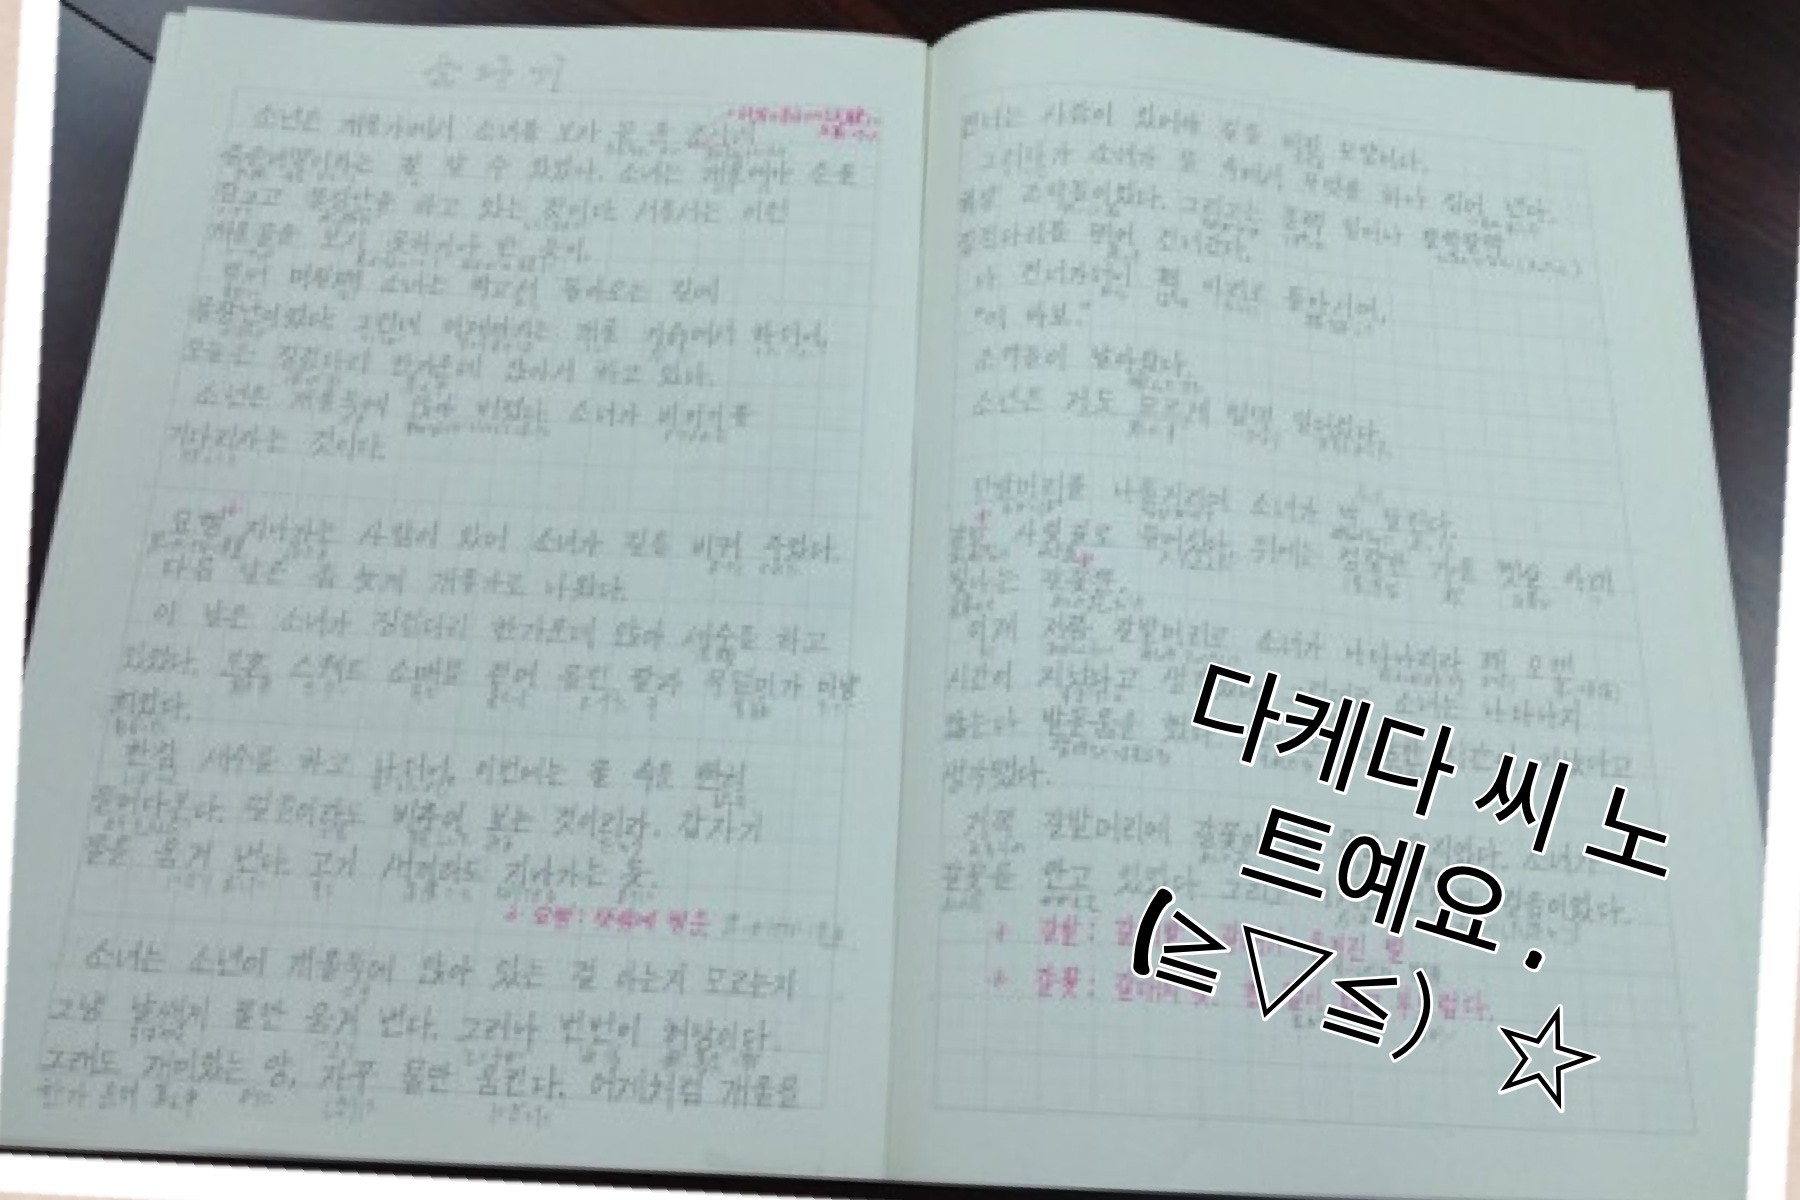 소나기
소년은 개울가에서 소녀를 보자 곧 윤 초시네
증손녀딸이라는 걸 알 수 있었다. 소녀는 개울에다 손을
잠그고 물장난을 하고 있는 것이다. 서울서는 이런
개울물을 보지 못하기나 한 듯이.
벌써 며칠째 소녀는 학교서 돌아오는 길에
물장난이었다. 그런데 어제까지는 개울 기슭에서 하더니,
오늘은 징검다리 한가운데 앉아서 하고 있다.
소년은 개울둑에 앉아 버렸다. 소녀가 비키기를
기다리자는 것이다.
요행 지나가는 사람이 있어 소녀가 길을 비켜 주었다.
다음 날은 좀 늦게 개울가로 나왔다.
이 날은 소녀가 징검다리 한가운데 앉아 세수를 하고
있었다. 분홍 스웨터 소매를 걷어 올린 팔과 목덜미가 마냥
희었다.
한참 세수를 하고 나더니, 이번에는 물 속을 빤히
들여다본다. 얼굴이라도 비추어 보는 것이리라. 갑자기
물을 움켜 낸다. 고기 새끼라도 지나가는 듯.
요행: 뜻밖에 얻은
소녀는 소년이 개울둑에 앉아 있는 걸 아는지 모르는지
그냥 날쌔게 물만 움켜 낸다. 그러나 번번이 허탕이다.
그래도 재미있는 양, 자꾸 물만 움킨다. 어제처럼 개울을
건너는 사람이 있어야 길을 비킬 모양이다.
그러다가 소녀가 물 속에서 무엇을 하나 집어 낸다.
하얀 조약돌이었다. 그리고는 훌쩍 일어나 팔짝팔짝
징검다리를 뛰어 건너간다.
다 건너가더니 홱 이리로 돌아서며,
"이 바보."
조약돌이 날아왔다.
소년은 저도 모르게 벌떡 일어섰다.
단발머리를 나풀거리며 소녀가 막 달린다.
갈밭 사잇길로 들어섰다. 뒤에는 청량한 가을 햇살 아래
빛나는 갈꽃뿐.
이제 저쯤 갈밭머리로 소녀가 나타나리라. 꽤 오랜
시간이 지났다고 소녀는 나타나지
않는다. 발돋움을 했다고
생각됐다.
저쪽 갈밭머리에 갈꽃이
갈꽃을 안고 있었다.
갈밭:
갈꽃:
다케다 씨 노
트예요.
(≧▽≦) ☆